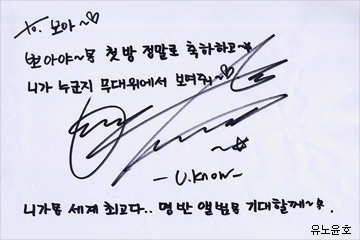 to. 보아~♡
뽀아야~ 첫 방 정말로 축하하고~
니가 누군지 무대위에서 보여줘~♡
~☆
-U.Know-
니가 세계 최고다.. 명반 앨범 기대할께~☆.
유노윤호